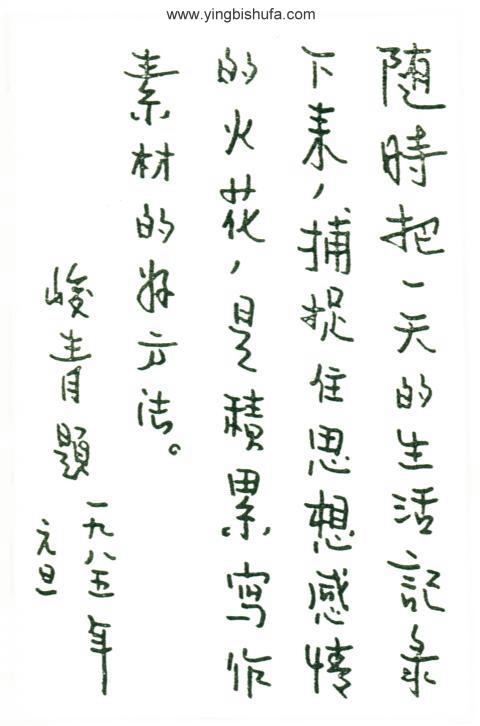 www.yingbishufa.com
隨時把一天的生活記录
下来，捕捉住思想感情
的火花，是積累寫作
素材的好方法。
峻青題
一九八五年
元旦